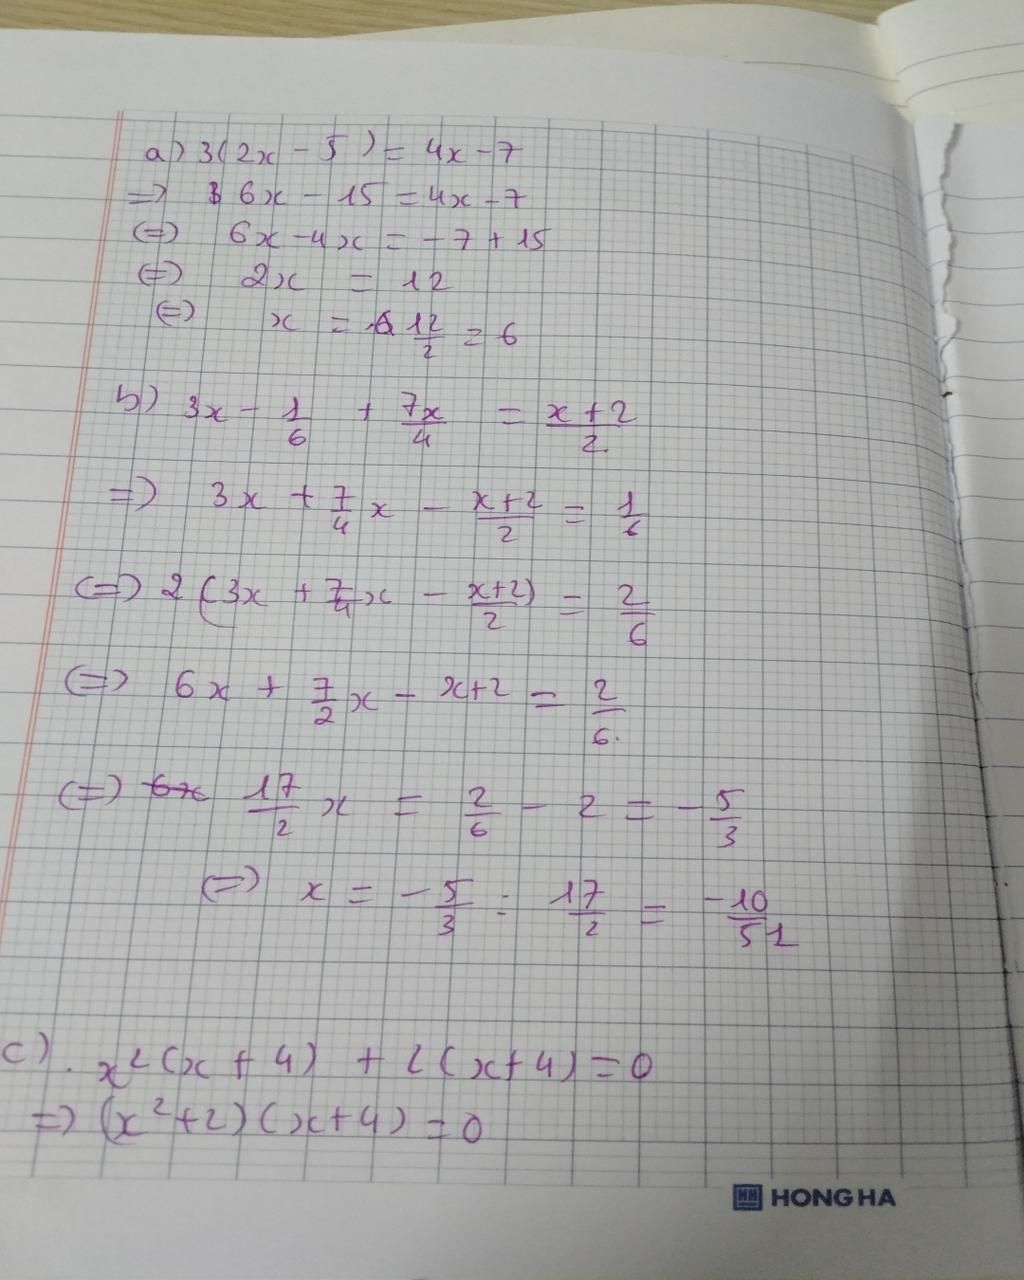 a) 3(2x - 5) = 4x - 7
=> 6x - 15 = 4x - 7
(=) 6x - 4x = -7 + 15
(=) 2x = 12
(=) x = 12/2 = 6
b) 3x - 1/6 + 7x/4 = x+2/2
=) 3x + 7/4 x - x+2/2 = 1/6
(=) 2(3x + 7/4 x - x+2/2) = 2/6
(=) 6x + 7/2 x - x+2 = 2/6.
(=) 6x 17/2 x = 2/6 - 2 = -5/3
(=) x = -5/3 : 17/2 = -10/51
c). x²(x + 4) + 2(x+4) = 0
=) (x²+2)(x+4) = 0
HH HONG HA